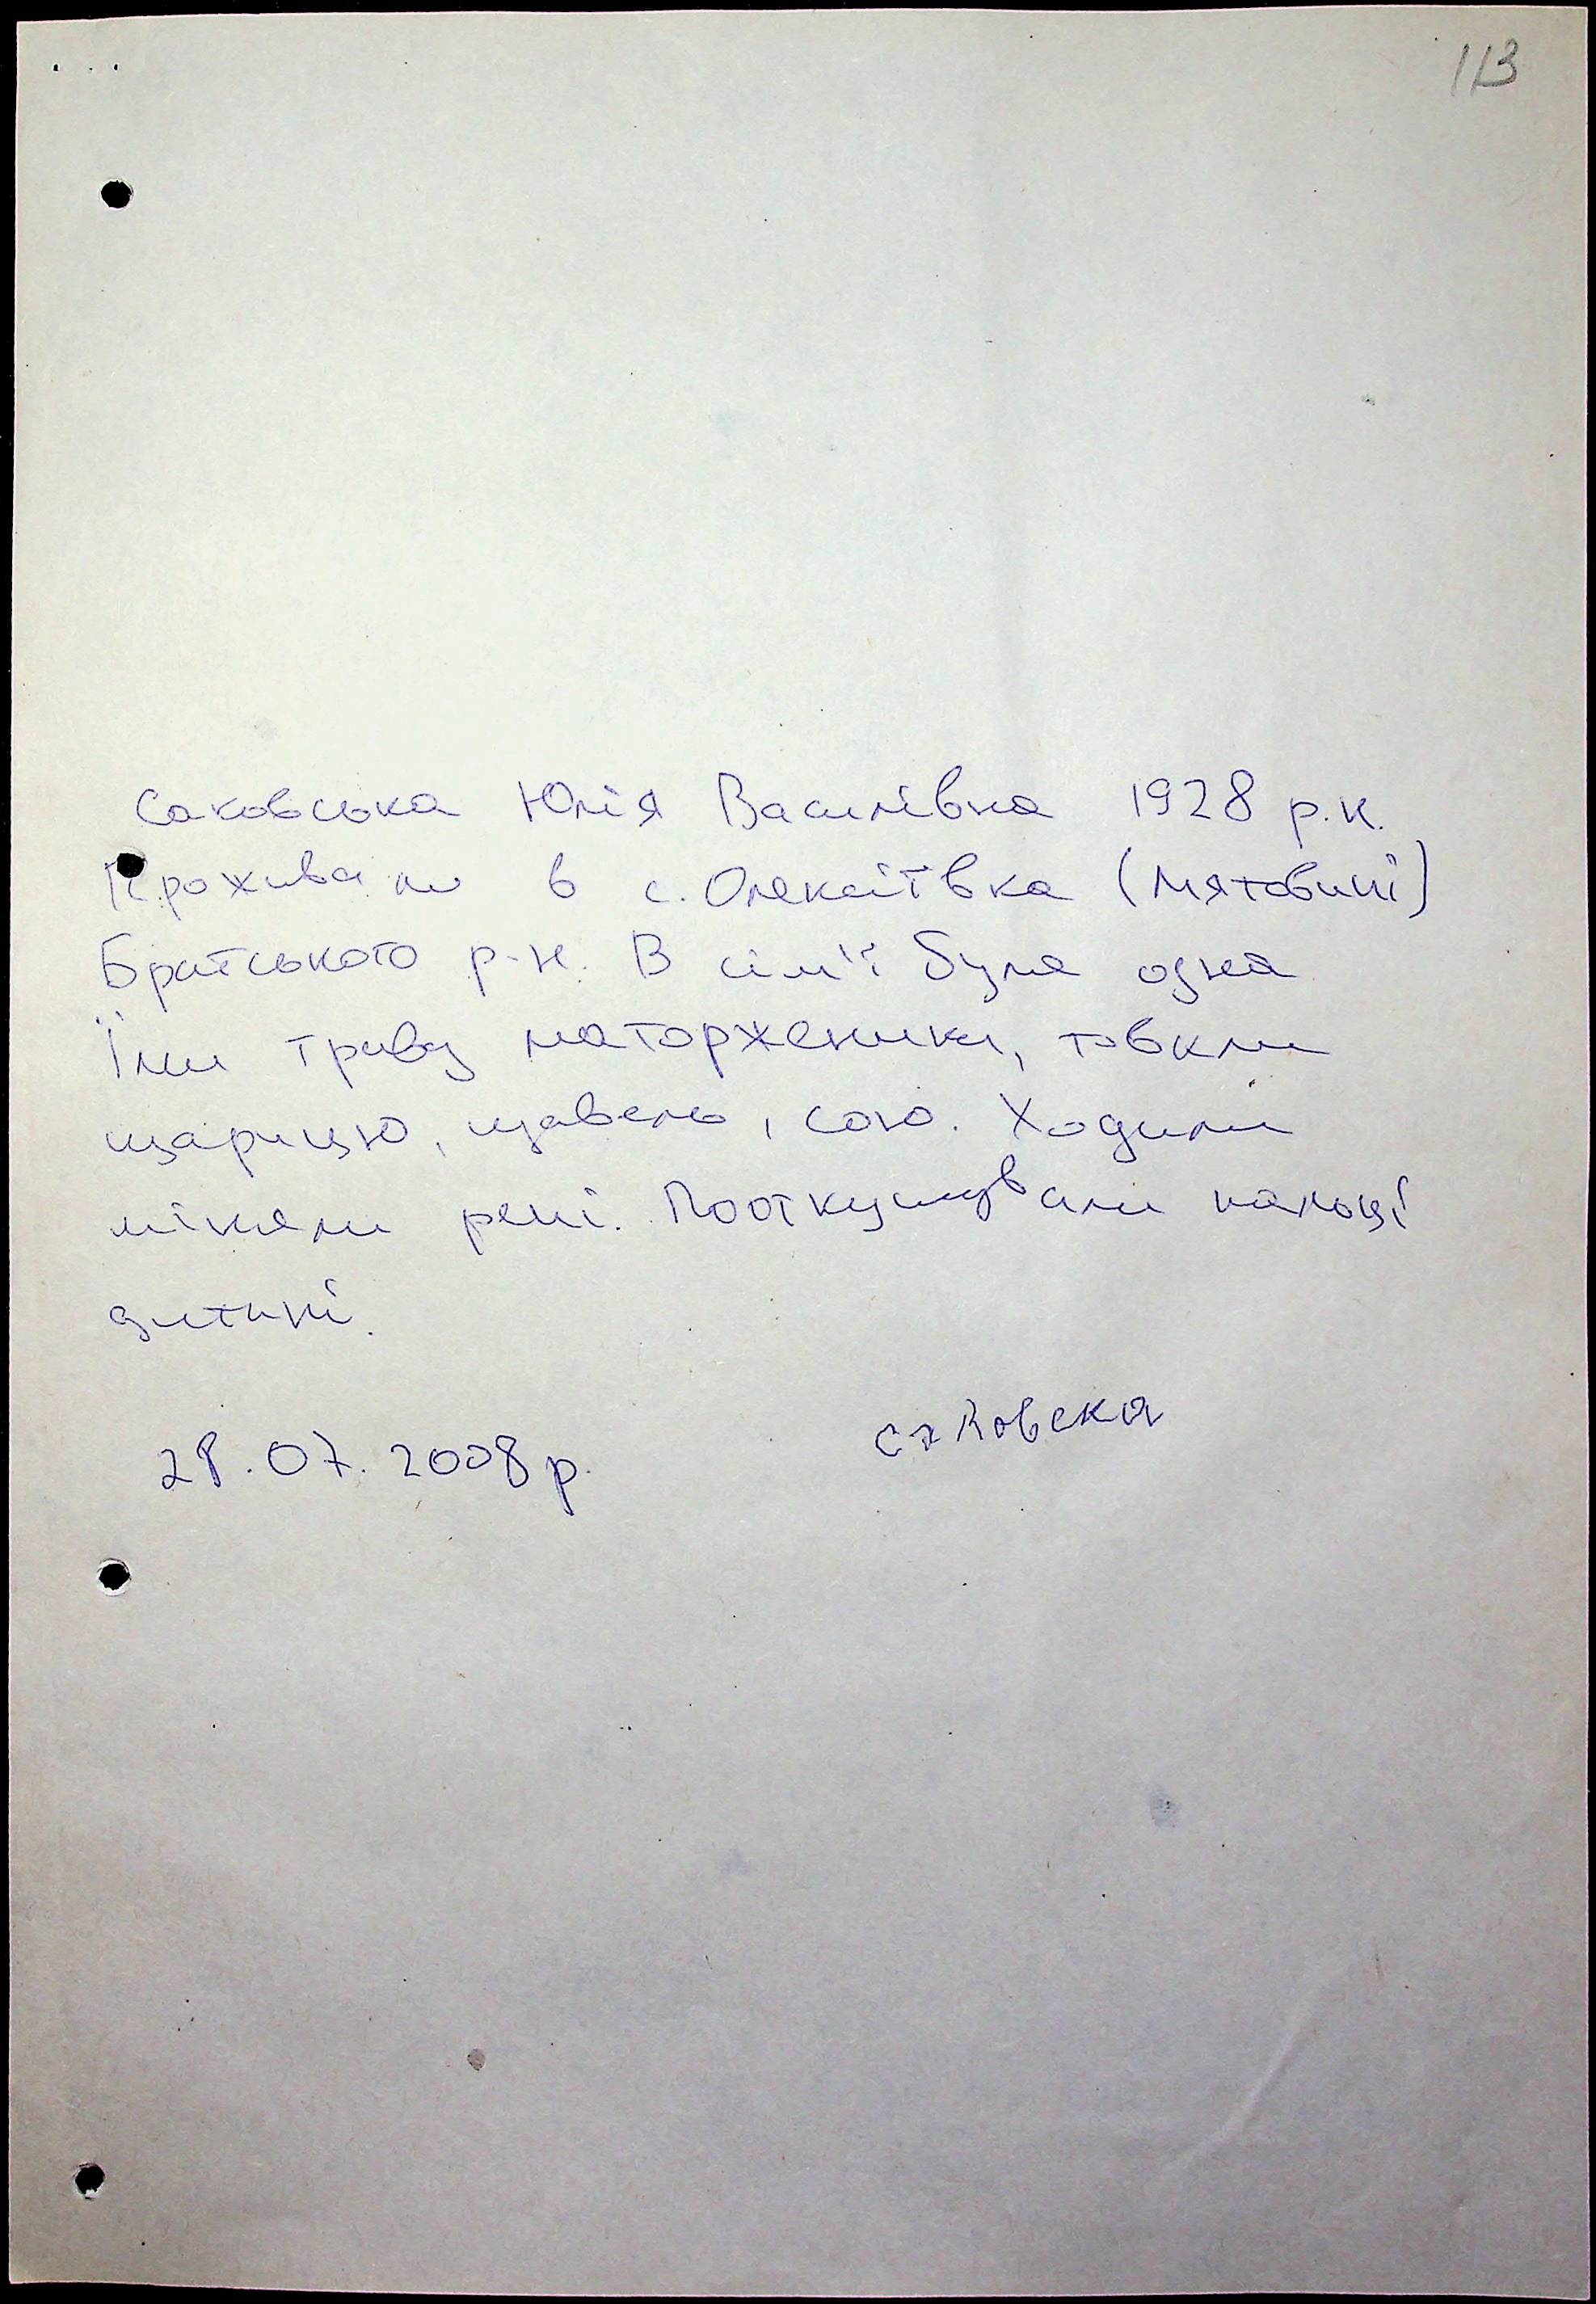 113
Саковська Юлія Василівна 1928 р.н.
Проживали в с. Олексіївка
Братського р-н. В сім'ї була одна
Їли траву маторженики, товкли
щарицю, щавель, сою. Ходили
міняли речі. Пооткушували пальці
дитині.
саковска
28.07.2008 р.